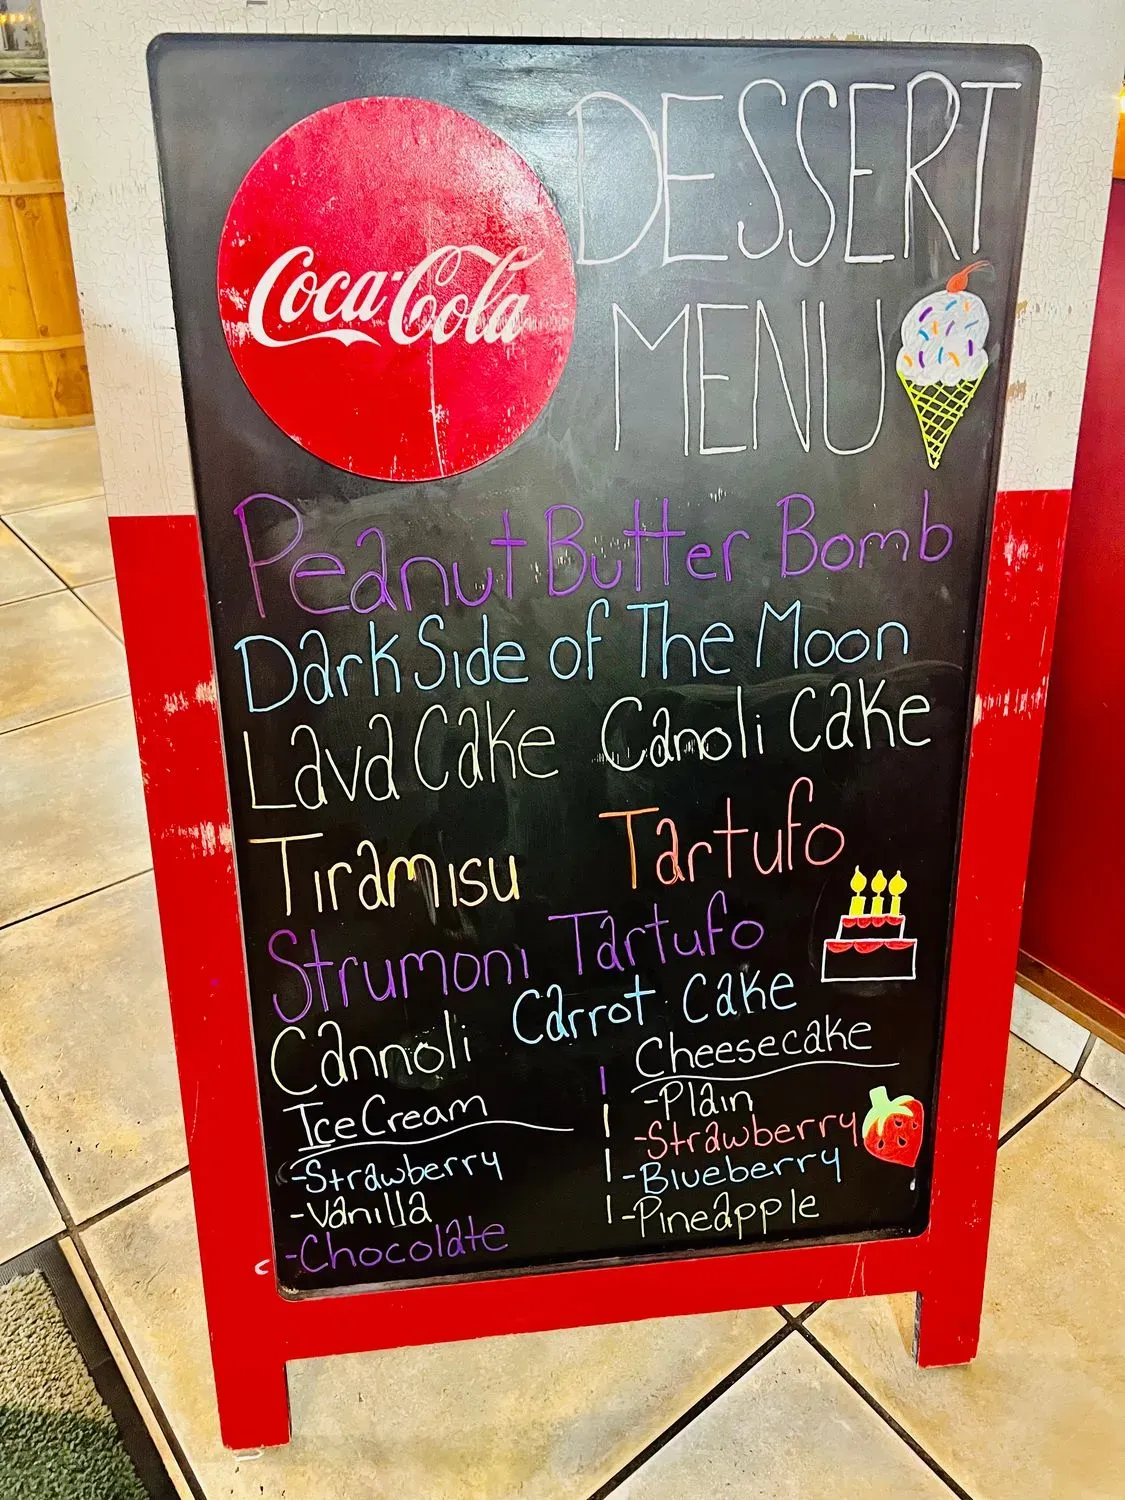 Coca-Cola
DESSERT
MENU
Peanut Butter Bomb
Dark Side of The Moon
Lava Cake Canoli Cake
Tiramisu Tartufo
Strumoni Tartufo
Cannoli Carrot Cake
Ice Cream
-Strawberry
-Vanilla
-Chocolate
Cheesecake
-Plain
-Strawberry
-Blueberry
-Pineapple